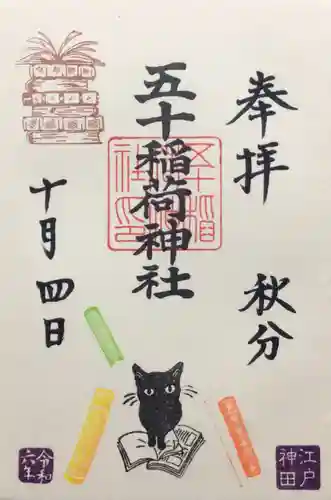 奉拝
秋分
五十稲荷神社
十月四日
令和
六年
江戸
神田